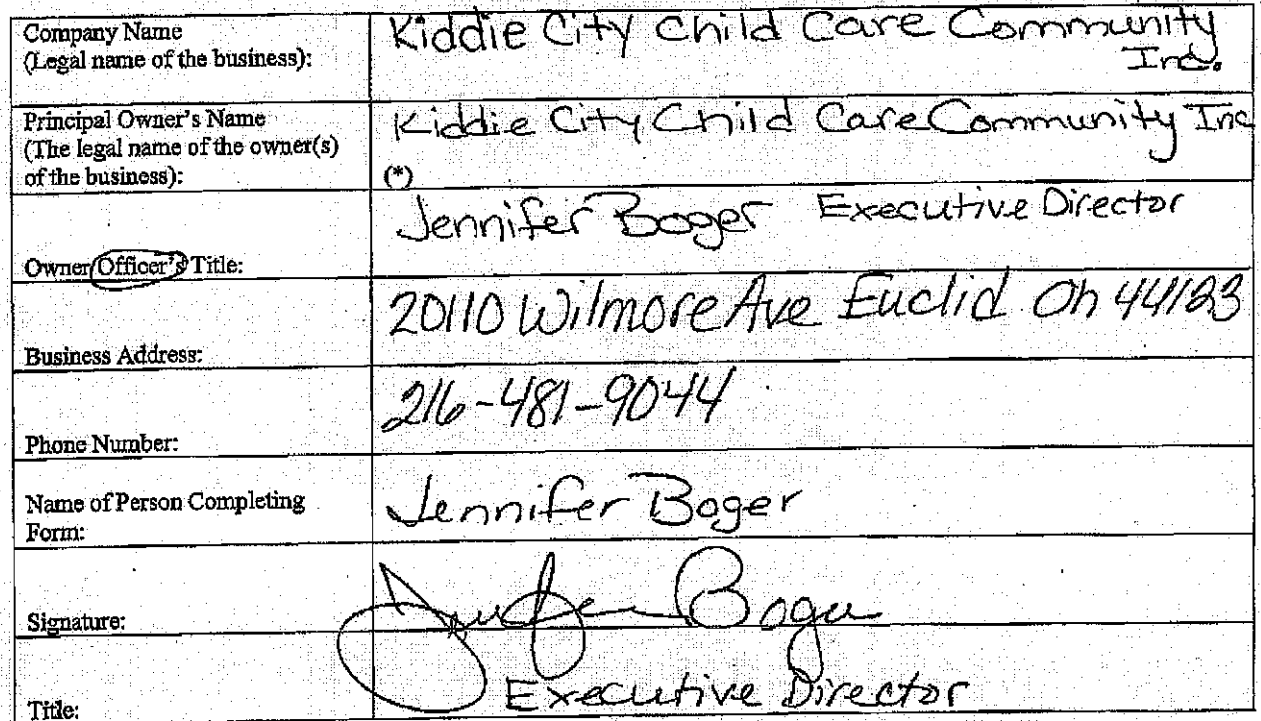 Company Name
(Legal name of the business):
Kiddie City Child Care Community
Inc.
Principal Owner's Name
(The legal name of the owner(s)
of the business):
Kiddie City Child Care Community Inc
(*)
Jennifer Boger Executive Director
Owner/Officer's Title:
20110 Wilmore Ave Euclid Oh 44123
Business Address:
216-481-9044
Phone Number:
Name of Person Completing
Form:
Jennifer Boger
Signature:
Jennifer Boger
Title:
Executive Director